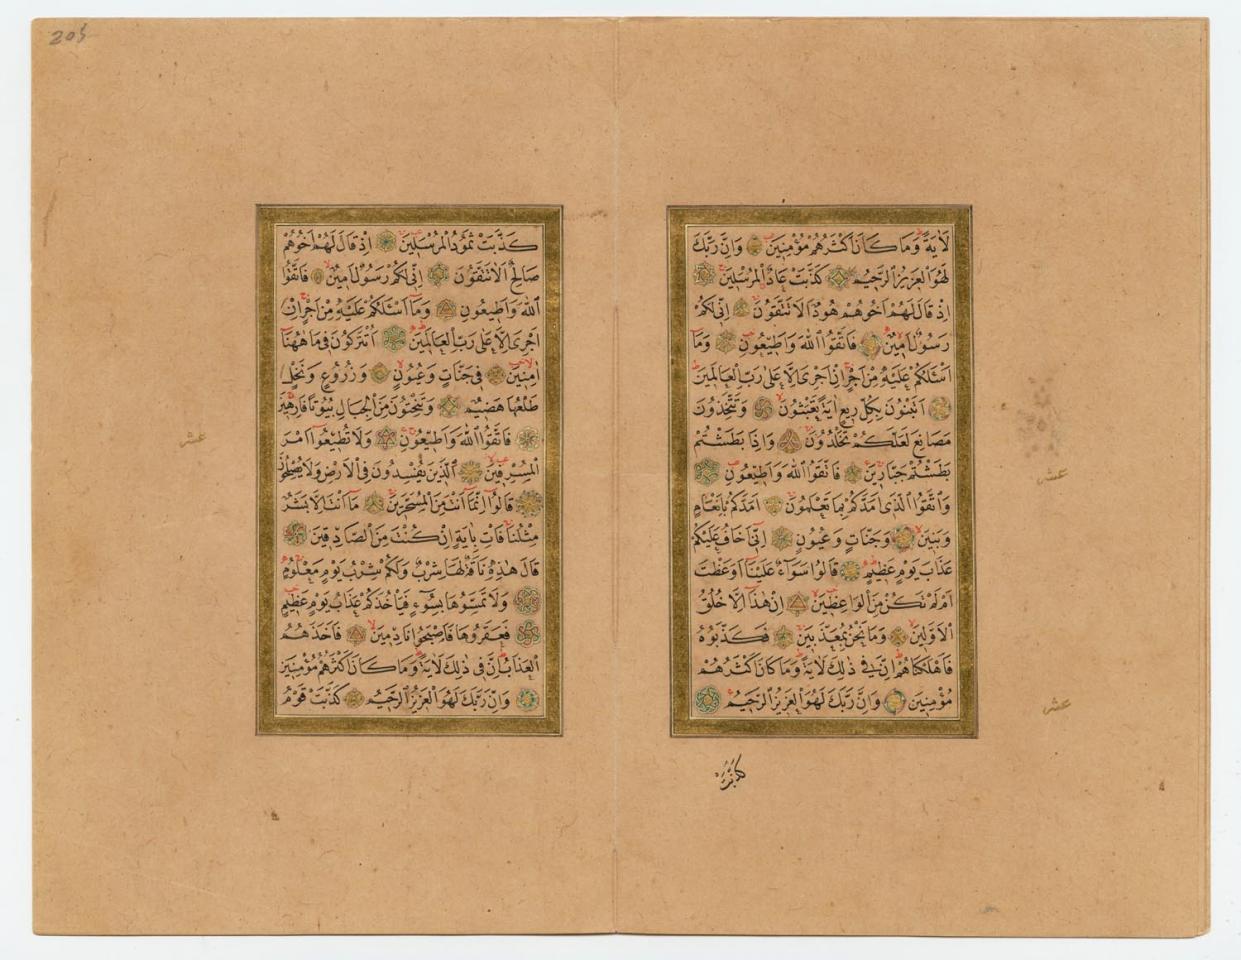 لَاٰيَةً وَمَا كَانَ اَكْثَرُهُمْ مُؤْمِنِينَ وَاِنَّ رَبَّكَ
لَهُوَ الْعَزِيزُ الرَّحِيمُ كَذَّبَتْ عَادٌ الْمُرْسَلِينَ
اِذْ قَالَ لَهُمْ اَخُوهُمْ هُودٌ اَلَا تَتَّقُونَ اِنِّى لَكُمْ
رَسُولٌ اَمِينٌ فَاتَّقُوا اللّٰهَ وَاَطِيعُونِ وَمَا
اَسْئَلُكُمْ عَلَيْهِ مِنْ اَجْرٍ اِنْ اَجْرِىَ اِلَّا عَلٰى رَبِّ الْعَالَمِينَ
اَتَبْنُونَ بِكُلِّ رِيعٍ اٰيَةً تَعْبَثُونَ وَتَتَّخِذُونَ
مَصَانِعَ لَعَلَّكُمْ تَخْلُدُونَ وَاِذَا بَطَشْتُمْ
بَطَشْتُمْ جَبَّارِينَ فَاتَّقُوا اللّٰهَ وَاَطِيعُونِ
وَاتَّقُوا الَّذِى اَمَدَّكُمْ بِمَا تَعْلَمُونَ اَمَدَّكُمْ بِاَنْعَامٍ
وَبَنِينَ وَجَنَّاتٍ وَعُيُونٍ اِنِّى اَخَافُ عَلَيْكُمْ
عَذَابَ يَوْمٍ عَظِيمٍ قَالُوا سَوَاءٌ عَلَيْنَا اَوَعَظْتَ
اَمْ لَمْ تَكُنْ مِنَ الْوَاعِظِينَ اِنْ هٰذَا اِلَّا خُلُقُ
الْاَوَّلِينَ وَمَا نَحْنُ بِمُعَذَّبِينَ فَكَذَّبُوهُ
فَاَهْلَكْنَاهُمْ اِنَّ فِى ذٰلِكَ لَاٰيَةً وَمَا كَانَ اَكْثَرُهُمْ
مُؤْمِنِينَ وَاِنَّ رَبَّكَ لَهُوَ الْعَزِيزُ الرَّحِيمُ
كَذَّبَتْ
عشر
عشر
205
كَذَّبَتْ ثَمُودُ الْمُرْسَلِينَ اِذْ قَالَ لَهُمْ اَخُوهُمْ
صَالِحٌ اَلَا تَتَّقُونَ اِنِّى لَكُمْ رَسُولٌ اَمِينٌ فَاتَّقُوا
اللّٰهَ وَاَطِيعُونِ وَمَا اَسْئَلُكُمْ عَلَيْهِ مِنْ اَجْرٍ اِنْ
اَجْرِىَ اِلَّا عَلٰى رَبِّ الْعَالَمِينَ اَتُتْرَكُونَ فِى مَا هٰهُنَا
اٰمِنِينَ فِى جَنَّاتٍ وَعُيُونٍ وَزُرُوعٍ وَنَخْلٍ
طَلْعُهَا هَضِيمٌ وَتَنْحِتُونَ مِنَ الْجِبَالِ بُيُوتًا فَارِهِينَ
فَاتَّقُوا اللّٰهَ وَاَطِيعُونِ وَلَا تُطِيعُوا اَمْرَ
الْمُسْرِفِينَ اَلَّذِينَ يُفْسِدُونَ فِى الْاَرْضِ وَلَا يُصْلِحُونَ
قَالُوا اِنَّمَا اَنْتَ مِنَ الْمُسَحَّرِينَ مَا اَنْتَ اِلَّا بَشَرٌ
مِثْلُنَا فَاْتِ بِاٰيَةٍ اِنْ كُنْتَ مِنَ الصَّادِقِينَ
قَالَ هٰذِهِ نَاقَةٌ لَهَا شِرْبٌ وَلَكُمْ شِرْبُ يَوْمٍ مَعْلُومٍ
وَلَا تَمَسُّوهَا بِسُوءٍ فَيَاْخُذَكُمْ عَذَابُ يَوْمٍ عَظِيمٍ
فَعَقَرُوهَا فَاَصْبَحُوا نَادِمِينَ فَاَخَذَهُمُ
الْعَذَابُ اِنَّ فِى ذٰلِكَ لَاٰيَةً وَمَا كَانَ اَكْثَرُهُمْ مُؤْمِنِينَ
وَاِنَّ رَبَّكَ لَهُوَ الْعَزِيزُ الرَّحِيمُ كَذَّبَتْ قَوْمُ
عشر